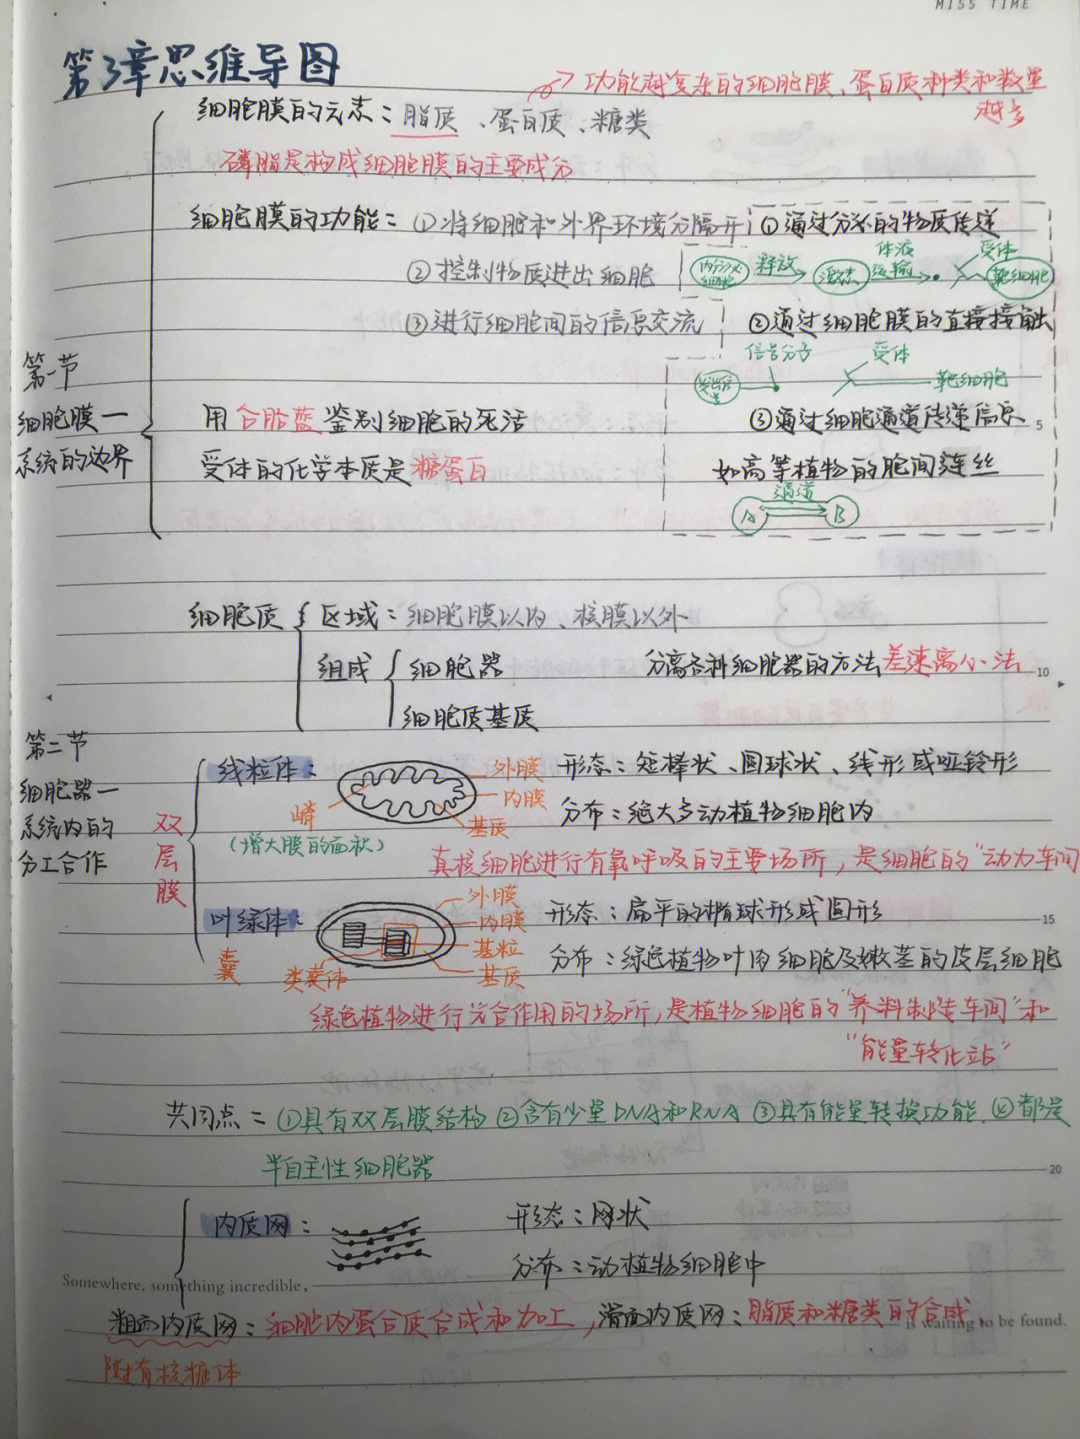 MISS TIME
第3章思维导图
功能越复杂的细胞膜、蛋白质种类和数量
越多
细胞膜的元素：脂质、蛋白质、糖类
磷脂是构成细胞膜的主要成分
细胞膜的功能：①将细胞和外界环境分隔开
②控制物质进出细胞
③进行细胞间的信息交流
①通过分泌的物质传递
内分泌细胞 释放 激素 体液运输 受体 靶细胞
②通过细胞膜的直接接触
信号分子 受体
发出信号 靶细胞
③通过细胞通道传递信息
如高等植物的胞间连丝
通道
A B
第一节
细胞膜一
系统的边界
用台盼蓝鉴别细胞的死活
受体的化学本质是糖蛋白
5
细胞质 区域：细胞膜以内、核膜以外
组成 细胞器 分离各种细胞器的方法差速离心法
10
细胞质基质
第二节
细胞器一
系统内的
分工合作
双层膜
线粒体：
外膜
内膜
嵴
基质
(增大膜的面积)
形态：短棒状、圆球状、线形或哑铃形
分布：绝大多动植物细胞内
真核细胞进行有氧呼吸的主要场所，是细胞的"动力车间
叶绿体：
外膜
内膜
基粒
基质
类囊体
囊
形态：扁平的椭球形或圆形
15
分布：绿色植物叶肉细胞及嫩茎的皮层细胞
绿色植物进行光合作用的场所，是植物细胞的"养料制造车间"和
"能量转化站"
共同点：①具有双层膜结构 ②含有少量DNA和RNA ③具有能量转换功能 ④都是
半自主性细胞器
20
内质网：
形态：网状
分布：动植物细胞中
Somewhere, something incredible,
粗面内质网：细胞内蛋白质合成和加工，滑面内质网：脂质和糖类的合成
is waiting to be found.
附有核糖体